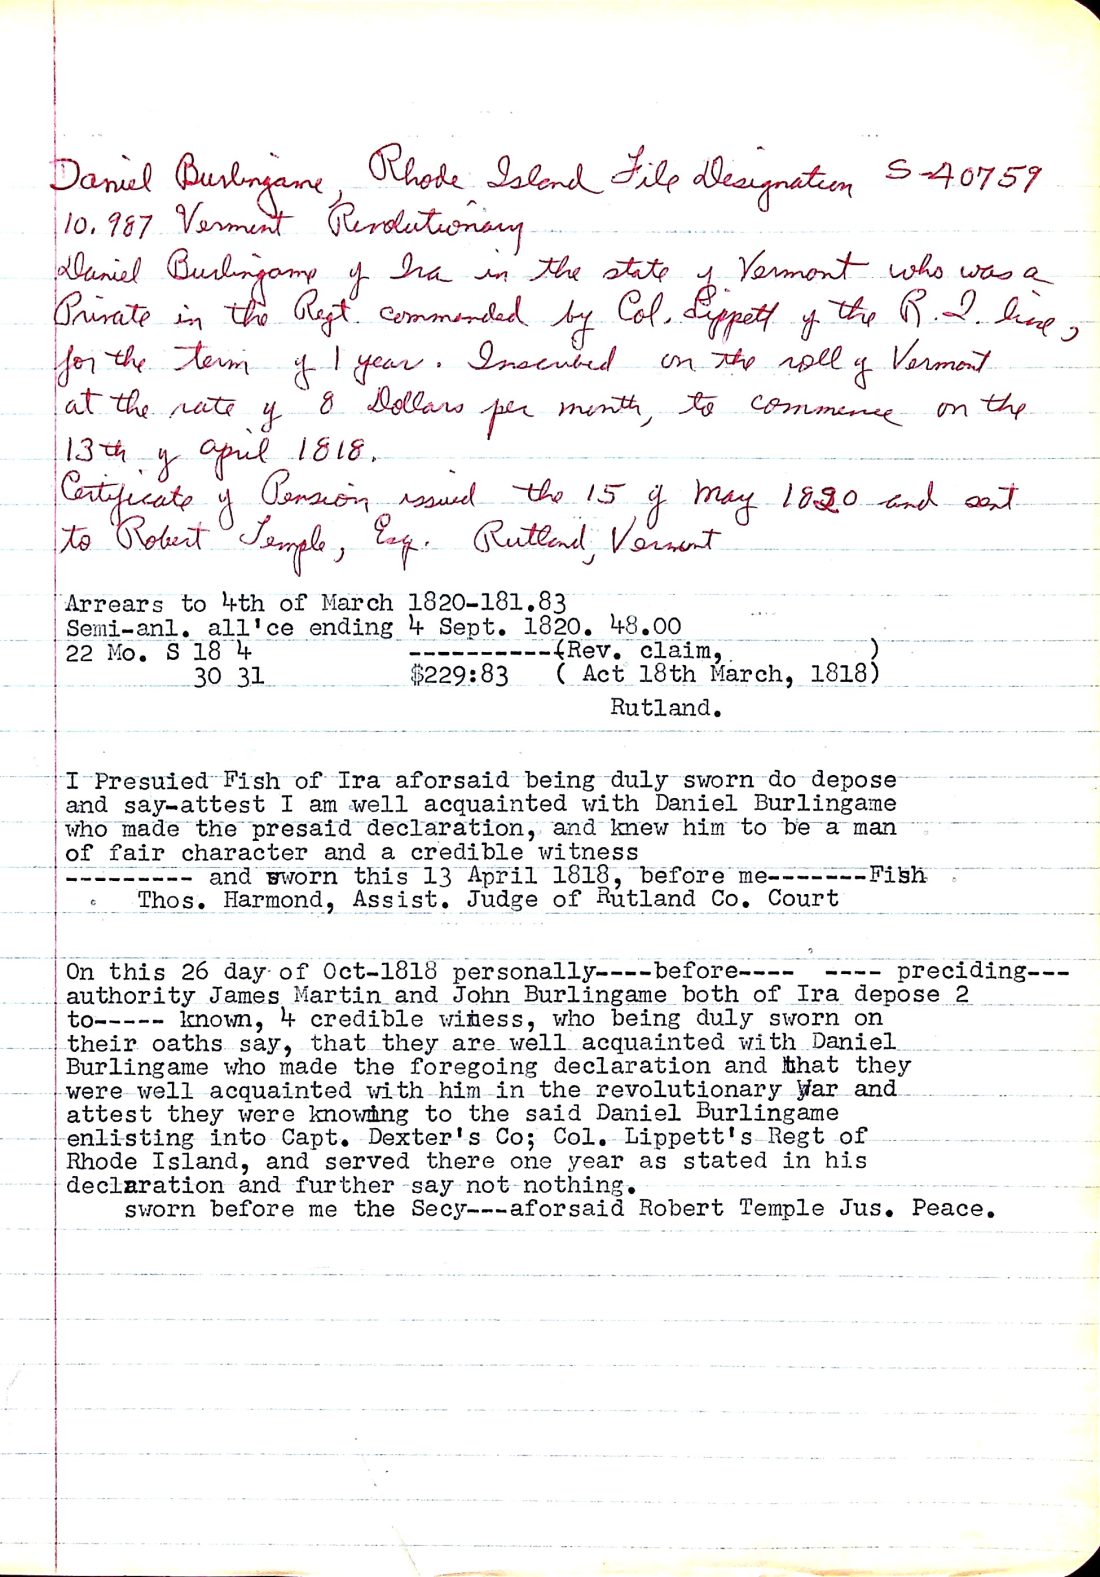 Daniel Burlingame, Rhode Island File Designation S-40759
10.987 Vermont Revolutionary
Daniel Burlingame of Ira in the state of Vermont who was a
Private in the Regt. commended by Col. Lippett of the R.I. line,
for the term of 1 year. Inscribed on the roll of Vermont
at the rate of 8 Dollars per month, to commence on the
13th of april 1818.
Certificate of Pension issued the 15 of May 1820 and sent
to Robert Temple, Esq. Rutland, Vermont
Arrears to 4th of March 1820-181.83
Semi-anl. all'ce ending 4 Sept. 1820. 48.00
22 Mo. S 18 4 ----------(Rev. claim, )
30 31 $229:83 ( Act 18th March, 1818)
Rutland.
I Presuied Fish of Ira aforsaid being duly sworn do depose
and say-attest I am well acquainted with Daniel Burlingame
who made the presaid declaration, and knew him to be a man
of fair character and a credible witness
--------- and sworn this 13 April 1818, before me-------Fish
Thos. Harmond, Assist. Judge of Rutland Co. Court
On this 26 day of Oct-1818 personally----before---- ---- preciding---
authority James Martin and John Burlingame both of Ira depose 2
to----- known, 4 credible winess, who being duly sworn on
their oaths say, that they are well acquainted with Daniel
Burlingame who made the foregoing declaration and that they
were well acquainted with him in the revolutionary War and
attest they were knowing to the said Daniel Burlingame
enlisting into Capt. Dexter's Co; Col. Lippett's Regt of
Rhode Island, and served there one year as stated in his
declaration and further say not nothing.
sworn before me the Secy---aforsaid Robert Temple Jus. Peace.